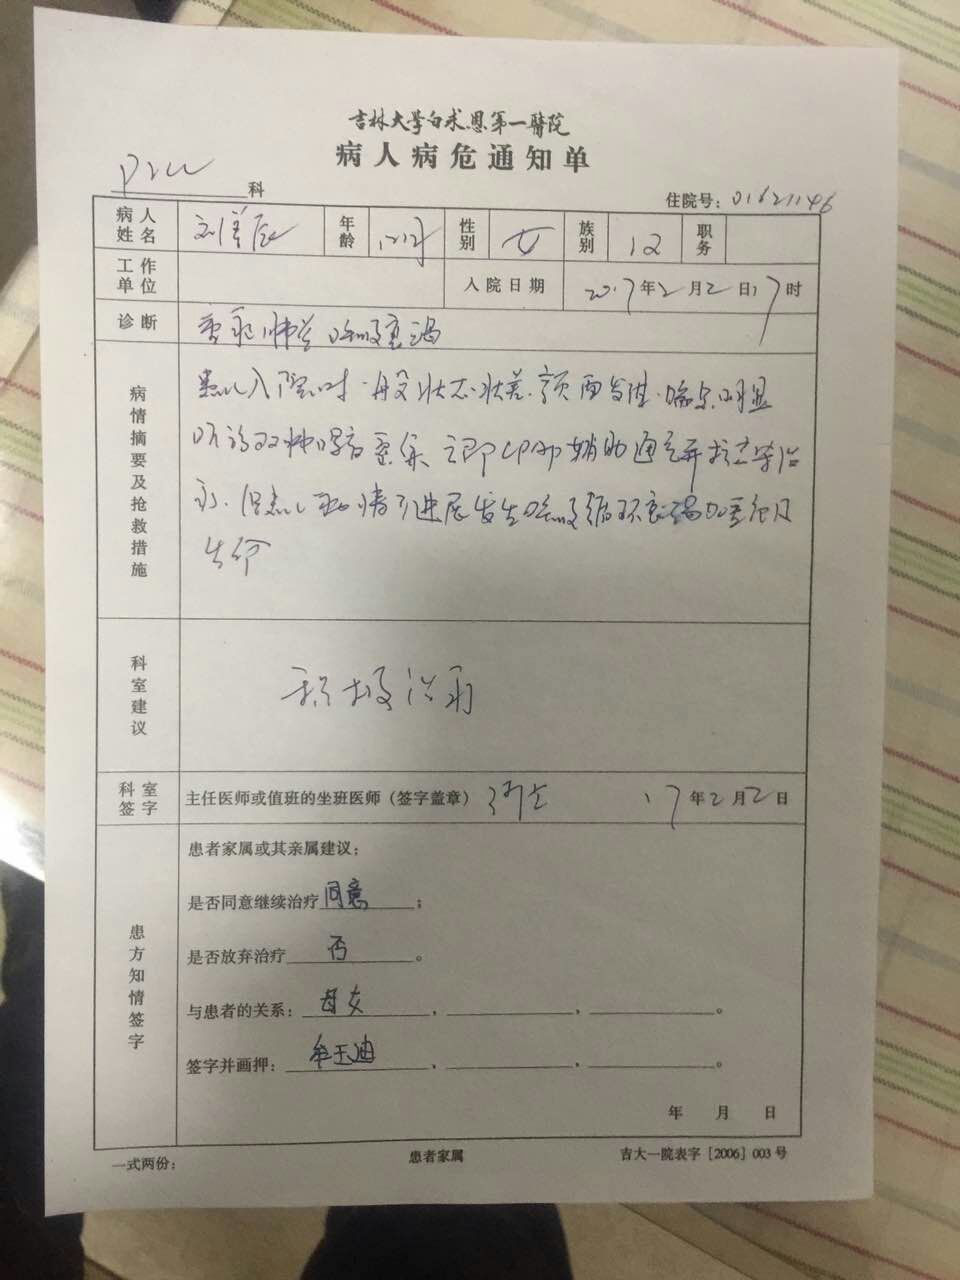 吉林大学白求恩第一醫院
病人病危通知单
PICU 科
住院号：01621146
病人姓名 年龄 性别 女 族别 汉 职务
工作单位 入院日期 2017年2月2日17时
诊断 重症肺炎 呼吸衰竭
病情摘要及抢救措施
患儿入院时一般状态差
听诊双肺 立即 辅助通气并 等治
疗 进展发生呼吸循环衰竭 危及
生命
科室建议 积极治疗
科室签字 主任医师或值班的坐班医师（签字盖章） 17年2月2日
患方知情签字
患者家属或其亲属建议；
是否同意继续治疗 同意；
是否放弃治疗 否。
与患者的关系：母女，，。
签字并画押：牟玉迪，，。
年 月 日
一式两份： 患者家属 吉大一院表字［2006］003号